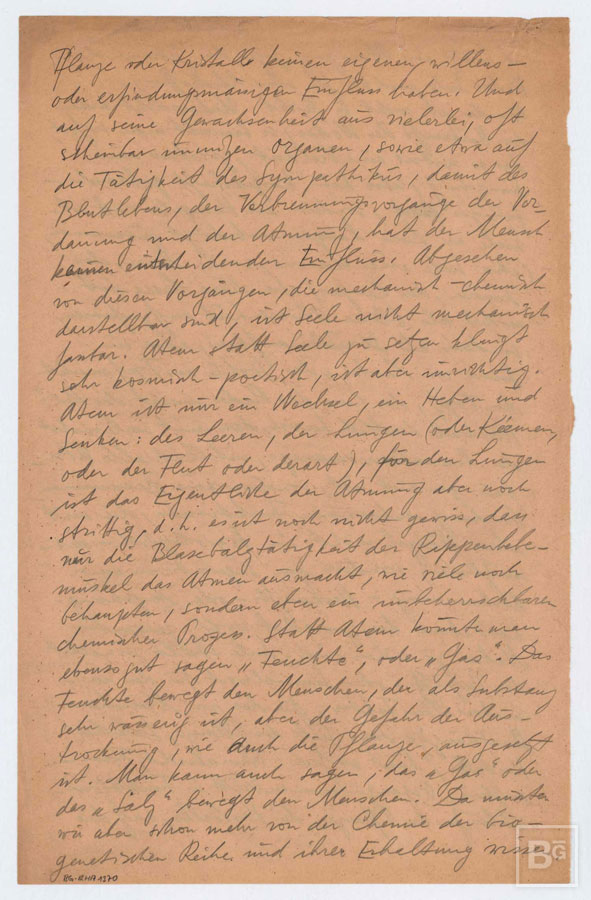 Pflanze oder Kristalle keinen eigenen willens-
oder erfindungsmässigen Einfluss haben. Und
auf seine Gewachsenheit aus vielerlei, oft
scheinbar unnützen Organen, sowie etwa auf
die Tätigkeit des Sympathikus, damit des
Blutlebens, der Verbrennungsvorgänge der Ver-
dauung und der Atmung, hat der Mensch
keinen entscheidenden Einfluss. Abgesehen
von diesen Vorgängen, die mechanisch-chemisch
darstellbar sind, ist Seele nicht mechanisch
fassbar. Atem statt Seele zu setzen klingt
sehr kosmisch-poetisch, ist aber unrichtig.
Atem ist nur ein Wechsel, ein Heben und
Senken: des Leeren, der Lungen (oder Kiemen,
oder der Flut oder derart), für den Lungen
ist das Eigentliche der Atmung aber noch
strittig, d.h. es ist noch nicht gewiss, dass
nur die Blasebalgtätigkeit der Rippenhebe-
muskel das Atmen ausmacht, wie viele noch
behaupten, sondern eben ein unbeherrschbarer
chemischer Prozess. Statt Atem könnte man
ebensogut sagen „Feuchte", oder „Gas". Das
Feuchte bewegt den Menschen, der als Substanz
sehr wässerig ist, aber der Gefahr der Aus-
trocknung, wie auch die Pflanze, ausgesetzt
ist. Man kann auch sagen, das „Gas" oder
das „Salz" bewegt den Menschen. Da müssten
wir aber schon mehr von der Chemie der bio-
genetischen Reihe und ihrer Erhaltung wissen
BG-RHA 1370
BG